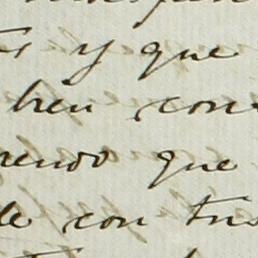 y que
bien con
endo que
de con tus